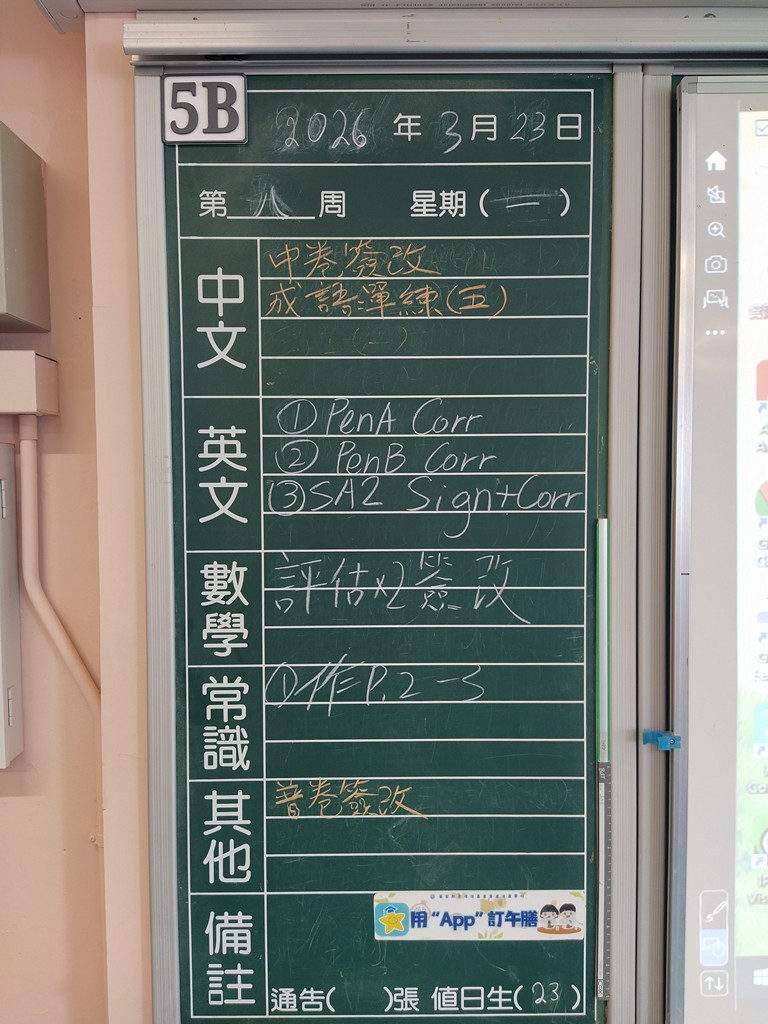 5B
2026 年 3 月 23 日
第 八 周 星期 ( 一 )
中文
中卷簽改
成語運練(五)
英文
① PenA Corr
② PenB Corr
③ SA2 Sign+Corr
數學
評估x2 簽改
常識
① 作 P.2-3
其他
普卷簽改
備註
用 “App” 訂午膳
通告( )張 值日生( 23 )